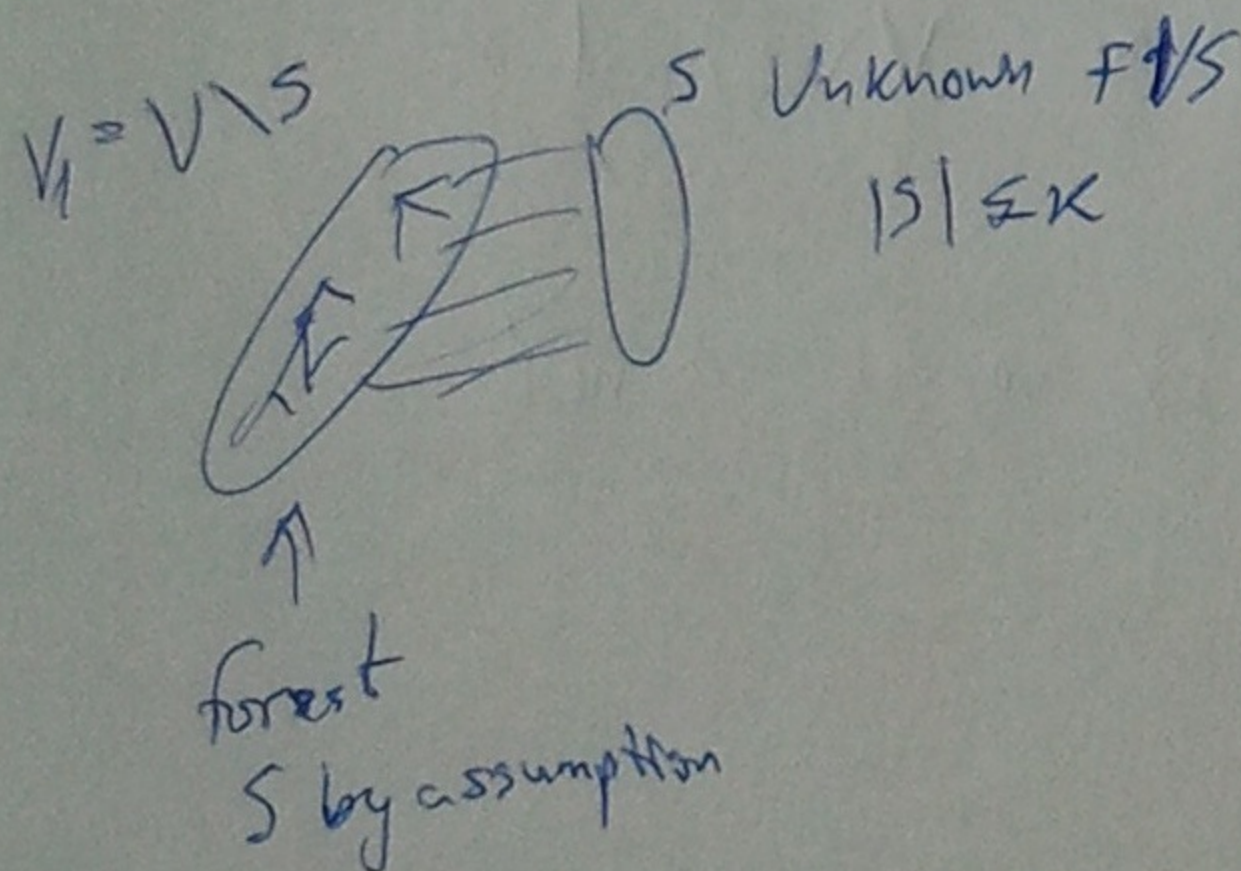 V₁ = V \ S
S Unknown FVS
|S| ≤ K
forest
S by assumption